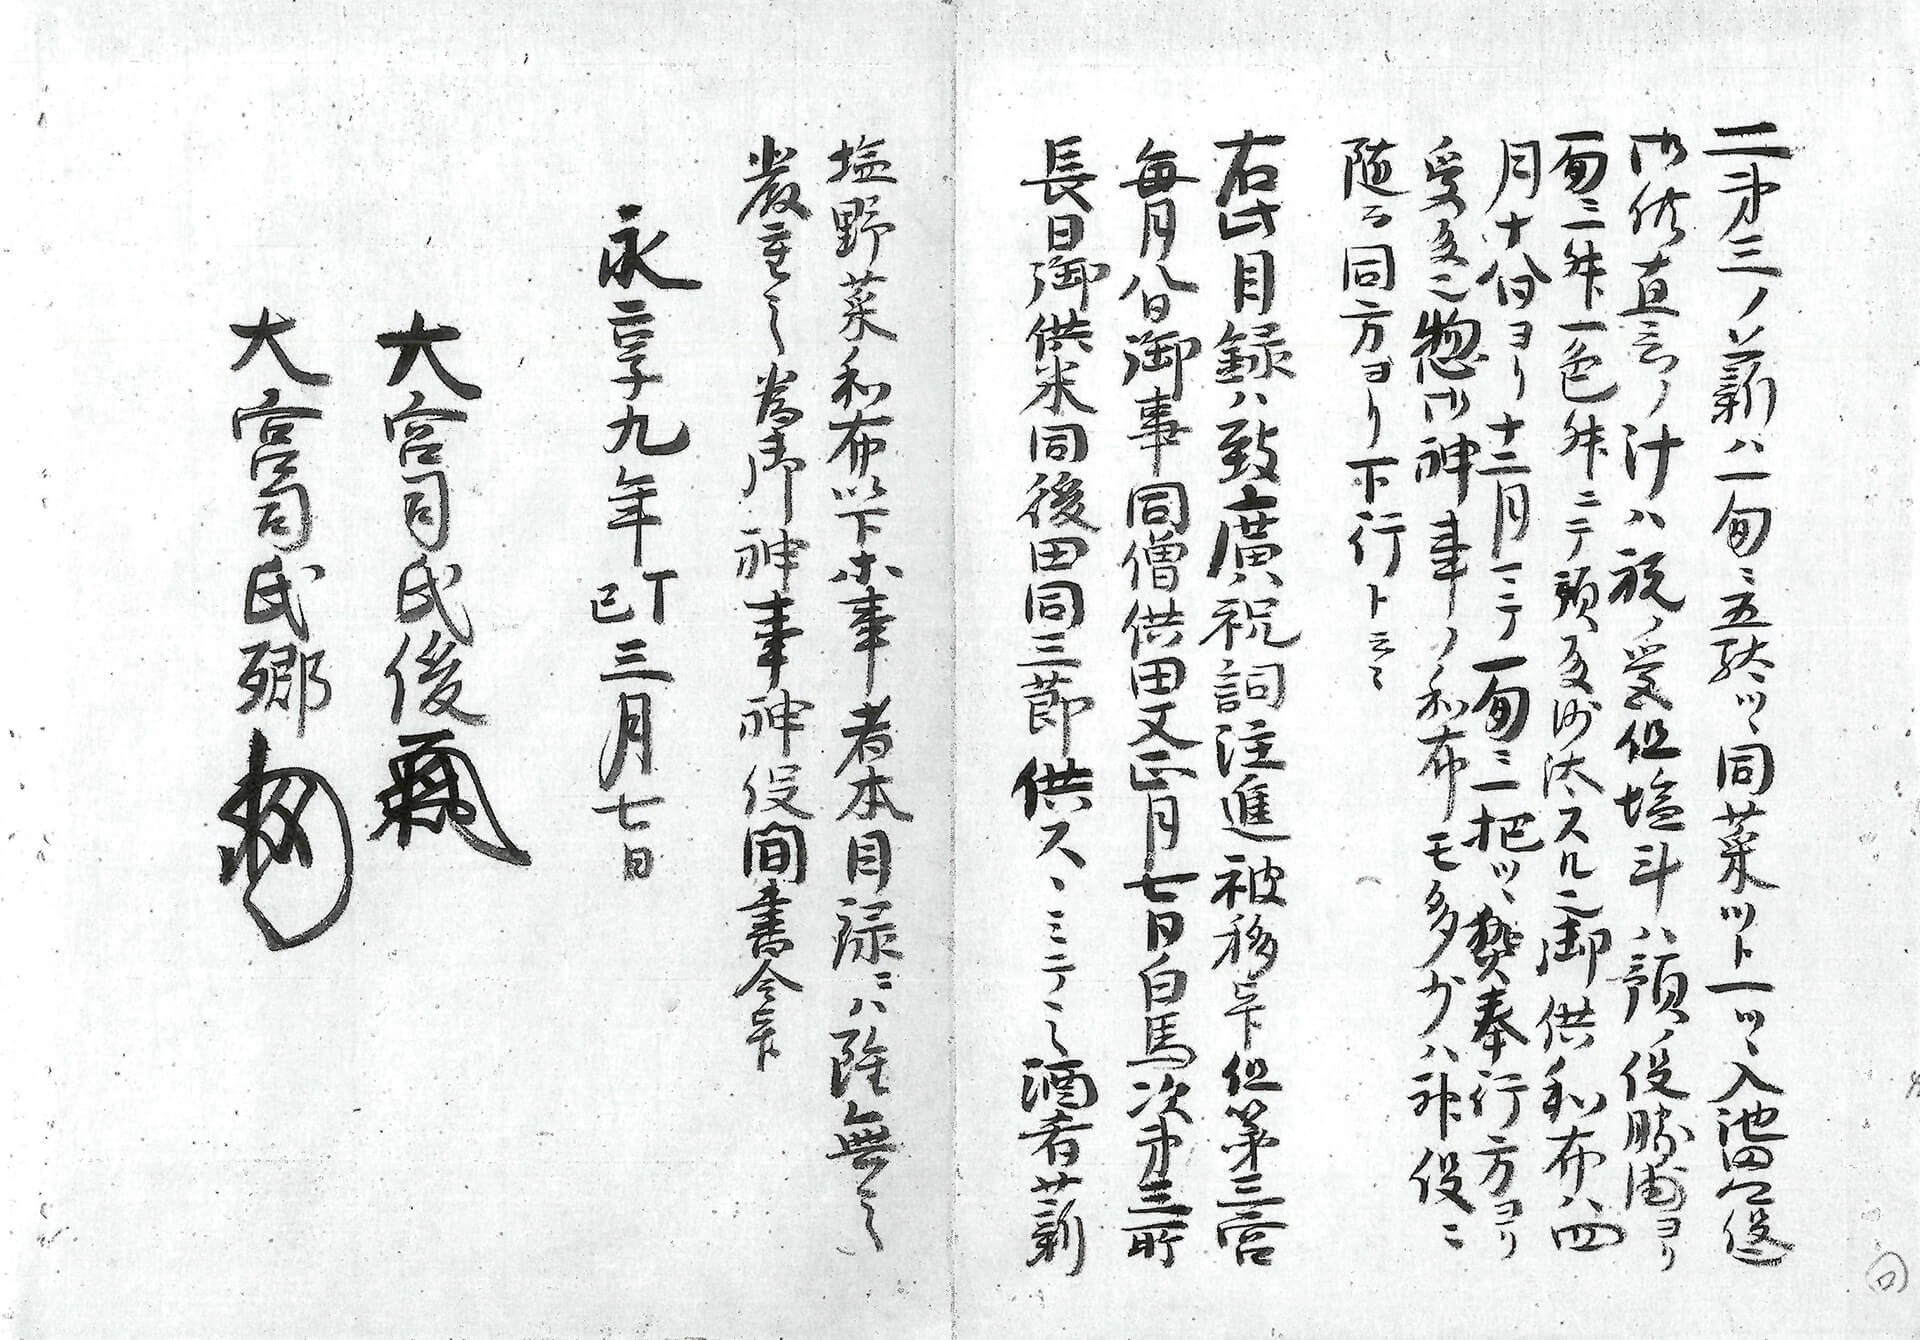 二、第三ノ薪ハ一旬ニ五駄ツヽ同菜ツト一ツヽ入池田
御供直会ノ汁ハ祝ノ受但塩斗ハ預ノ役勝浦ヨリ
一旬ニ三舛一色舛ニテ預及沙汰スル二御供和布ハ四
月十八日ヨリ十二月ニテ一旬ニ一把ツヽ贄奉行方ヨリ
受惣御神事ノ和布モ多少ハ神役ニ
随テ同方ヨリ下行ト云々
右此目録ハ致廣八祝詞注進被移畢但第三宮
毎月八日御事同僧供田又正月七日白馬次第三所
長日御供米同後田同三節供ス、ミテ之酒肴薪
塩野菜和布以下ホ事者本目録ニハ除無之
厳重之為御神事神役間書令畢
永享九年丁巳三月七日
大宮司氏俊
大宮司氏郷